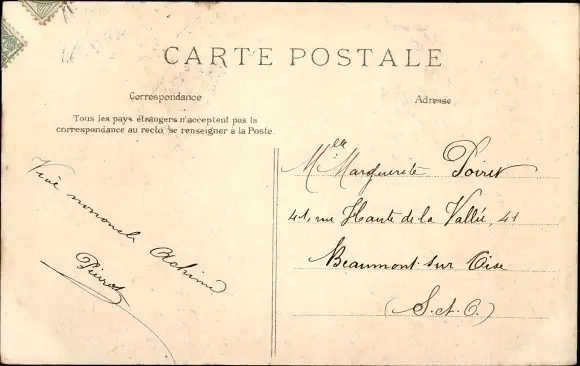 CARTE POSTALE
Correspondance
Tous les pays étrangers n'acceptent pas la
correspondance au recto. Se renseigner à la Poste.
Adresse
Achim
Pierrot
Mlle Marguerite Poiret
41, rue Haute de la Vallée, 41
Beaumont-sur Oise
(S.-et-O.)